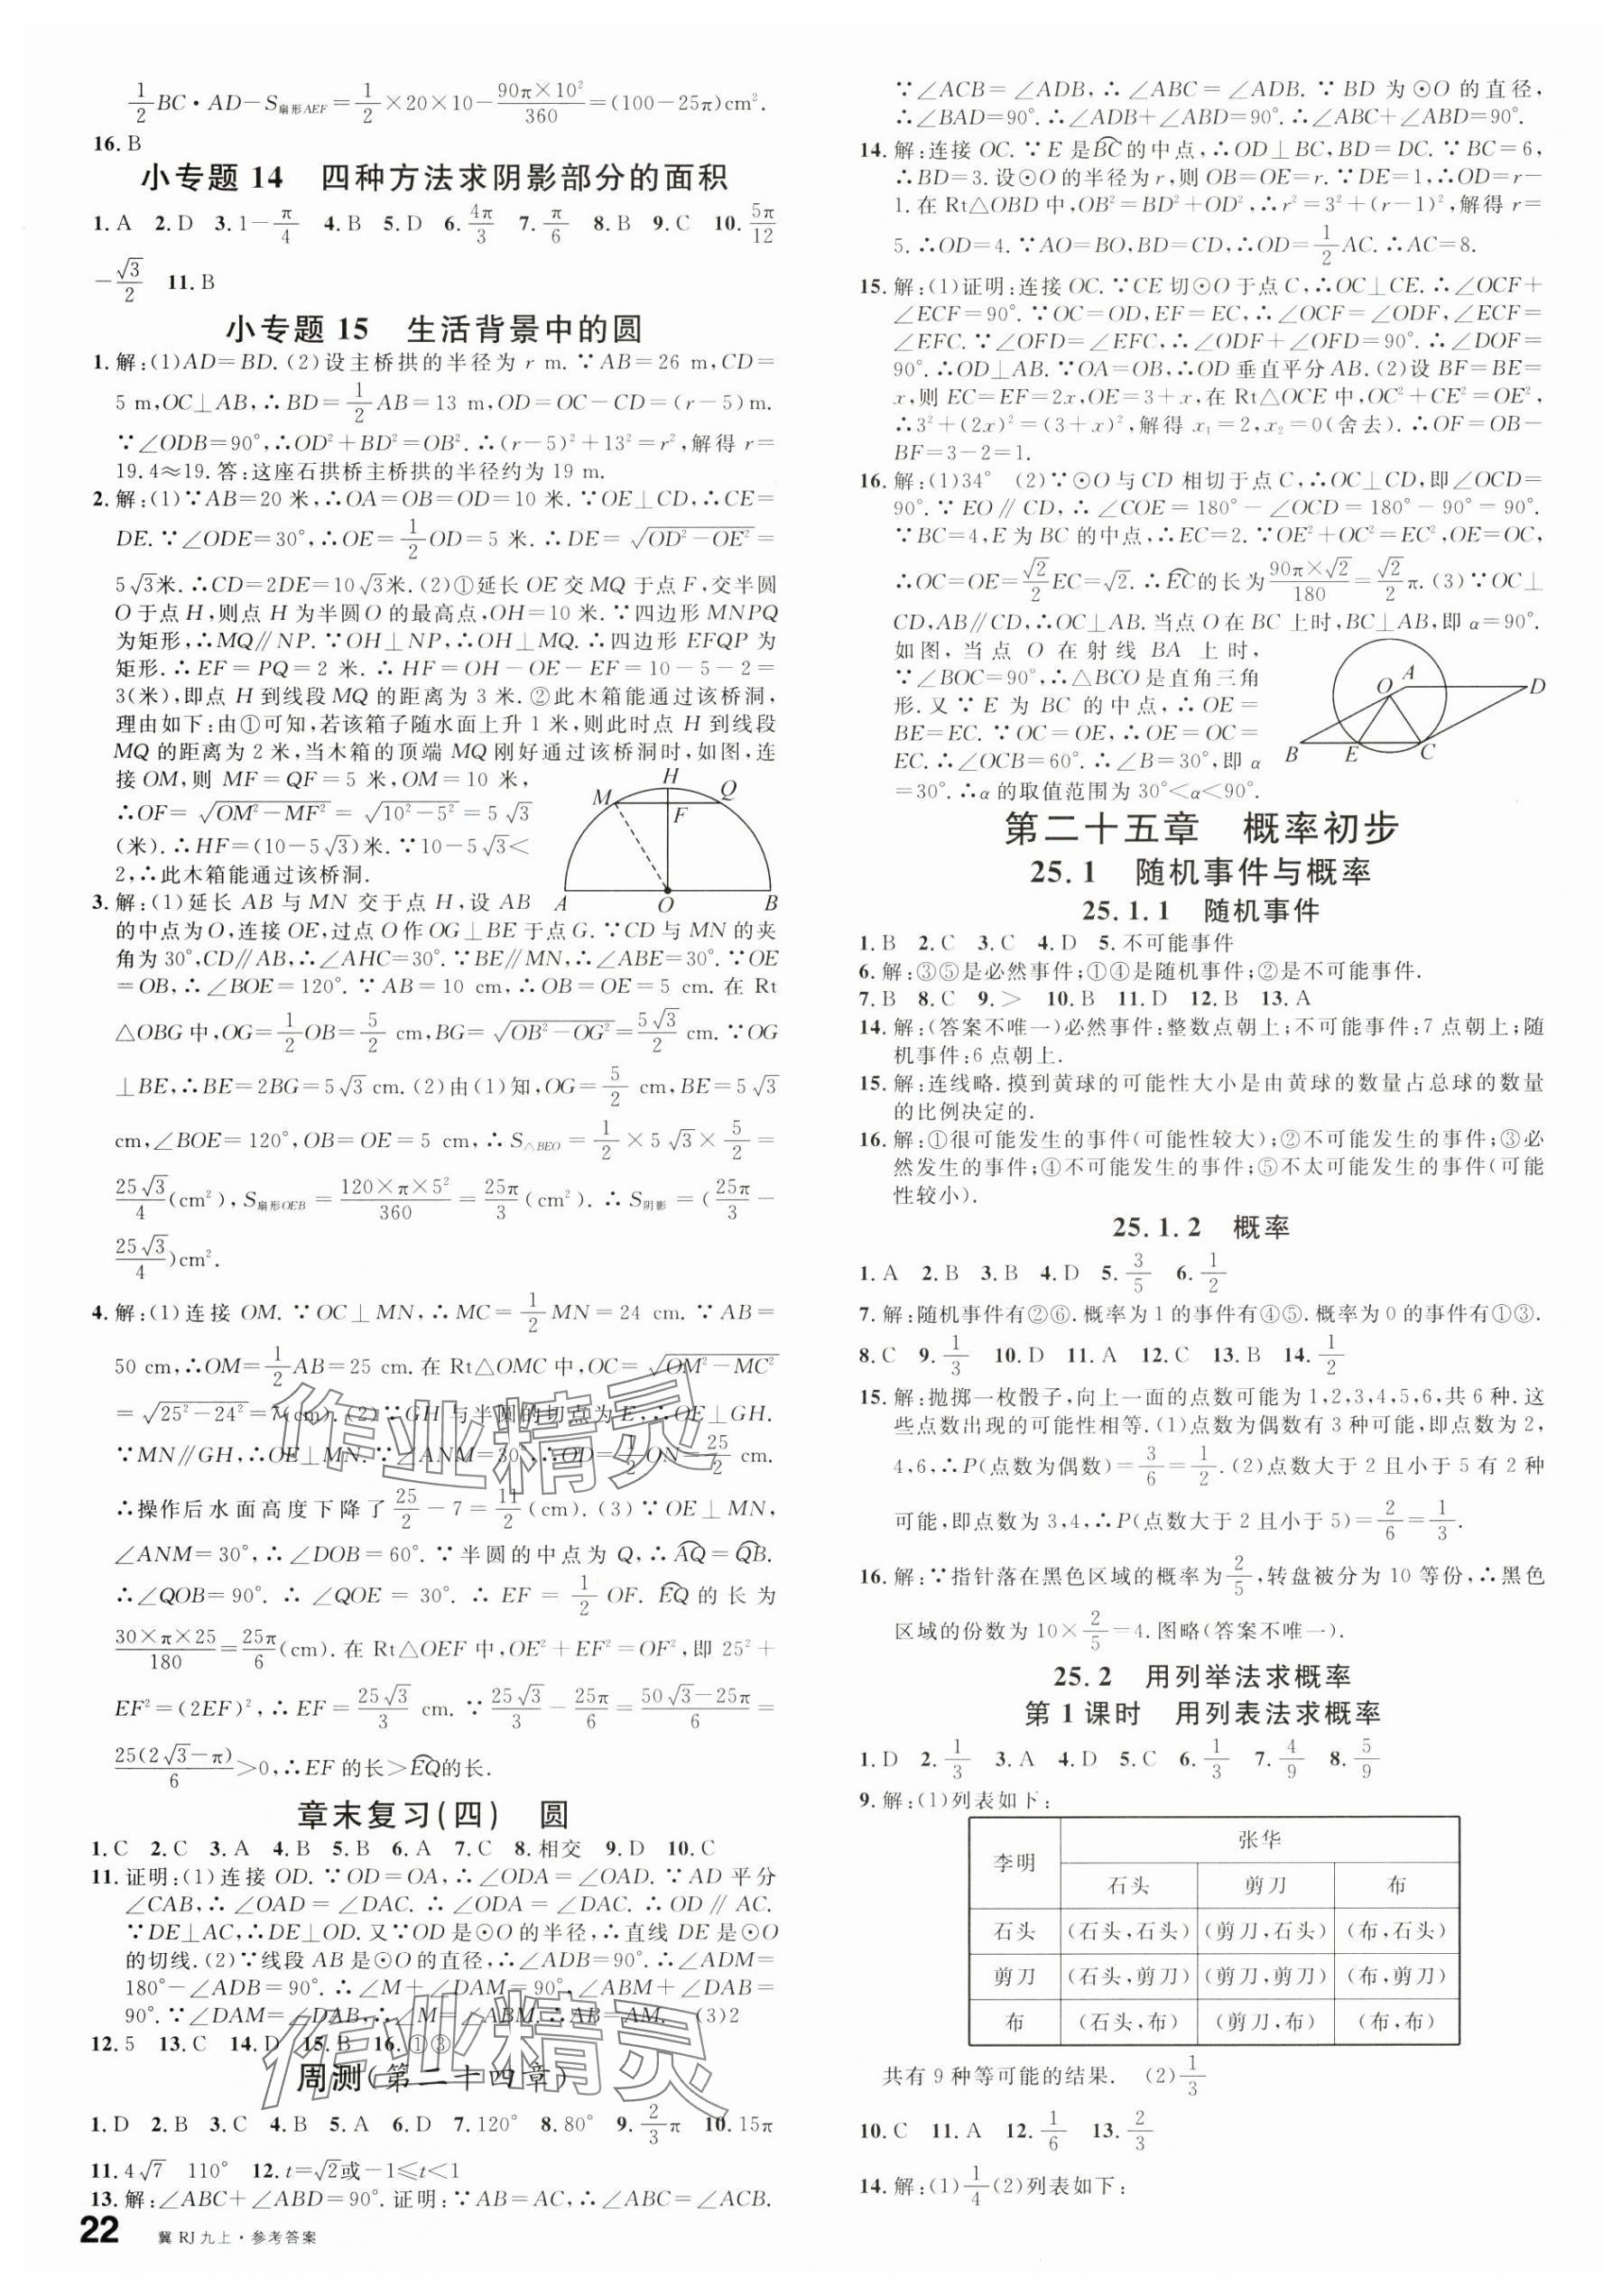 1/2 BC·AD－S扇形AEF＝1/2×20×10－90π×10²/360＝(100－25π)cm².
16. B
小专题 14　四种方法求阴影部分的面积
1. A　2. D　3. 1－π/4　4. B　5. D　6. 4π/3　7. π/6　8. B　9. C　10. 5π/12
－√3/2　11. B
小专题 15　生活背景中的圆
1. 解:(1)AD＝BD. (2)设主桥拱的半径为 r m. ∵AB＝26 m,CD＝
5 m,OC⊥AB,∴BD＝1/2AB＝13 m,OD＝OC－CD＝(r－5)m.
∵∠ODB＝90°,∴OD²＋BD²＝OB². ∴(r－5)²＋13²＝r²,解得 r＝
19.4≈19. 答:这座石拱桥主桥拱的半径约为 19 m.
2. 解:(1)∵AB＝20 米,∴OA＝OB＝OD＝10 米. ∵OE⊥CD,∴CE＝
DE. ∵∠ODE＝30°,∴OE＝1/2OD＝5 米. ∴DE＝√(OD²－OE²)＝
5√3米. ∴CD＝2DE＝10√3米. (2)①延长 OE 交 MQ 于点 F,交半圆
O 于点 H,则点 H 为半圆 O 的最高点,OH＝10 米. ∵四边形 MNPQ
为矩形,∴MQ∥NP. ∵OH⊥NP,∴OH⊥MQ. ∴四边形 EFQP 为
矩形. ∴EF＝PQ＝2 米. ∴HF＝OH－OE－EF＝10－5－2＝
3(米),即点 H 到线段 MQ 的距离为 3 米. ②此木箱能通过该桥洞,
理由如下:由①可知,若该箱子随水面上升 1 米,则此时点 H 到线段
MQ 的距离为 2 米,当木箱的顶端 MQ 刚好通过该桥洞时,如图,连
接 OM,则 MF＝QF＝5 米,OM＝10 米,
∴OF＝√(OM²－MF²)＝√(10²－5²)＝5√3
(米). ∴HF＝(10－5√3)米. ∵10－5√3＜
2,∴此木箱能通过该桥洞.
H
M
Q
F
A
O
B
3. 解:(1)延长 AB 与 MN 交于点 H,设 AB
的中点为O,连接 OE,过点 O 作 OG⊥BE 于点 G. ∵CD 与 MN 的夹
角为 30°,CD∥AB,∴∠AHC＝30°. ∵BE∥MN,∴∠ABE＝30°. ∵OE
＝OB,∴∠BOE＝120°. ∵AB＝10 cm,∴OB＝OE＝5 cm. 在 Rt
△OBG 中,OG＝1/2OB＝5/2 cm,BG＝√(OB²－OG²)＝5√3/2 cm. ∵OG
⊥BE,∴BE＝2BG＝5√3 cm. (2)由(1)知,OG＝5/2 cm,BE＝5√3
cm,∠BOE＝120°,OB＝OE＝5 cm,∴S△BEO＝1/2×5√3×5/2＝
25√3/4(cm²),S扇形OEB＝120×π×5²/360＝25π/3(cm²). ∴S阴影＝(25π/3－
25√3/4)cm².
4. 解:(1)连接 OM. ∵OC⊥MN,∴MC＝1/2MN＝24 cm. ∵AB＝
50 cm,∴OM＝1/2AB＝25 cm. 在 Rt△OMC 中,OC＝√(OM²－MC²)
＝√(25²－24²)＝7(cm). (2)∵GH 与半圆的切点为 E,∴OE⊥GH.
∵MN∥GH,∴OE⊥MN. ∵∠ANM＝30°,∴OD＝1/2ON＝25/2 cm.
∴操作后水面高度下降了25/2－7＝11/2(cm). (3)∵OE⊥MN,
∠ANM＝30°,∴∠DOB＝60°. ∵半圆的中点为 Q,∴⌒AQ＝⌒QB.
∴∠QOB＝90°. ∴∠QOE＝30°. ∴EF＝1/2 OF. ⌒EQ的长为
30×π×25/180＝25π/6(cm). 在 Rt△OEF 中,OE²＋EF²＝OF²,即 25²＋
EF²＝(2EF)²,∴EF＝25√3/3 cm. ∵25√3/3－25π/6＝50√3－25π/6＝
25(2√3－π)/6＞0,∴EF 的长＞⌒EQ的长.
章末复习(四)　圆
1. C　2. C　3. A　4. B　5. B　6. A　7. C　8. 相交　9. D　10. C
11. 证明:(1)连接 OD. ∵OD＝OA,∴∠ODA＝∠OAD. ∵AD 平分
∠CAB,∴∠OAD＝∠DAC. ∴∠ODA＝∠DAC. ∴OD∥AC.
∵DE⊥AC,∴DE⊥OD. 又∵OD 是⊙O 的半径,∴直线 DE 是⊙O
的切线. (2)∵线段 AB 是⊙O 的直径,∴∠ADB＝90°. ∴∠ADM＝
180°－∠ADB＝90°. ∴∠M＋∠DAM＝90°,∠ABM＋∠DAB＝
90°. ∵∠DAM＝∠DAB,∴∠M＝∠ABM. ∴AB＝AM. (3)2
12. 5　13. C　14. D　15. B　16. ①③
周测(第二十四章)
1. D　2. B　3. C　4. B　5. A　6. D　7. 120°　8. 80°　9. 2/3π　10. 15π
11. 4√7　110°　12. t＝√2或－1≤t＜1
13. 解:∠ABC＋∠ABD＝90°. 证明:∵AB＝AC,∴∠ABC＝∠ACB.
22　冀 RJ 九上·参考答案
∵∠ACB＝∠ADB,∴∠ABC＝∠ADB. ∵BD 为⊙O 的直径,
∴∠BAD＝90°. ∴∠ADB＋∠ABD＝90°. ∴∠ABC＋∠ABD＝90°.
14. 解:连接 OC. ∵E 是⌒BC的中点,∴OD⊥BC,BD＝DC. ∵BC＝6,
∴BD＝3. 设⊙O 的半径为 r,则 OB＝OE＝r. ∵DE＝1,∴OD＝r－
1. 在 Rt△OBD 中,OB²＝BD²＋OD²,∴r²＝3²＋(r－1)²,解得 r＝
5. ∴OD＝4. ∵AO＝BO,BD＝CD,∴OD＝1/2AC. ∴AC＝8.
15. 解:(1)证明:连接 OC. ∵CE 切⊙O 于点 C,∴OC⊥CE. ∴∠OCF＋
∠ECF＝90°. ∵OC＝OD,EF＝EC,∴∠OCF＝∠ODF,∠ECF＝
∠EFC. ∵∠OFD＝∠EFC,∴∠ODF＋∠OFD＝90°. ∴∠DOF＝
90°. ∴OD⊥AB. ∵OA＝OB,∴OD 垂直平分 AB. (2)设 BF＝BE＝
x,则 EC＝EF＝2x,OE＝3＋x,在 Rt△OCE 中,OC²＋CE²＝OE²,
∴3²＋(2x)²＝(3＋x)²,解得 x₁＝2,x₂＝0(舍去). ∴OF＝OB－
BF＝3－2＝1.
16. 解:(1)34°　(2)∵⊙O 与 CD 相切于点 C,∴OC⊥CD,即∠OCD＝
90°. ∵EO∥CD,∴∠COE＝180°－∠OCD＝180°－90°＝90°.
∵BC＝4,E 为 BC 的中点,∴EC＝2. ∵OE²＋OC²＝EC²,OE＝OC,
∴OC＝OE＝√2/2EC＝√2. ∴⌒EC的长为90π×√2/180＝√2/2π. (3)∵OC⊥
CD,AB∥CD,∴OC⊥AB. 当点 O 在 BC 上时,BC⊥AB,即 α＝90°.
如图,当点 O 在射线 BA 上时,
∵∠BOC＝90°,∴△BCO 是直角三角
形. 又∵E 为 BC 的中点,∴OE＝
BE＝EC. ∵OC＝OE,∴OE＝OC＝
EC. ∴∠OCB＝60°. ∴∠B＝30°,即 α
＝30°. ∴α的取值范围为 30°＜α＜90°.
O
A
D
B
E
C
第二十五章　概率初步
25.1　随机事件与概率
25.1.1　随机事件
1. B　2. C　3. C　4. D　5. 不可能事件
6. 解:③⑤是必然事件;①④是随机事件;②是不可能事件.
7. B　8. C　9. ＞　10. B　11. D　12. B　13. A
14. 解:(答案不唯一)必然事件:整数点朝上;不可能事件:7 点朝上;随
机事件:6 点朝上.
15. 解:连线略. 摸到黄球的可能性大小是由黄球的数量占总球的数量
的比例决定的.
16. 解:①很可能发生的事件(可能性较大);②不可能发生的事件;③必
然发生的事件;④不可能发生的事件;⑤不太可能发生的事件(可能
性较小).
25.1.2　概率
1. A　2. B　3. B　4. D　5. 3/5　6. 1/2
7. 解:随机事件有②⑥. 概率为 1 的事件有④⑤. 概率为 0 的事件有①③.
8. C　9. 1/3　10. D　11. A　12. C　13. B　14. 1/2
15. 解:抛掷一枚骰子,向上一面的点数可能为 1,2,3,4,5,6,共 6 种. 这
些点数出现的可能性相等. (1)点数为偶数有 3 种可能,即点数为 2,
4,6,∴P(点数为偶数)＝3/6＝1/2. (2)点数大于 2 且小于 5 有 2 种
可能,即点数为 3,4,∴P(点数大于 2 且小于 5)＝2/6＝1/3.
16. 解:∵指针落在黑色区域的概率为2/5,转盘被分为 10 等份,∴黑色
区域的份数为 10×2/5＝4. 图略(答案不唯一).
25.2　用列举法求概率
第 1 课时　用列表法求概率
1. D　2. 1/3　3. A　4. D　5. C　6. 1/3　7. 4/9　8. 5/9
9. 解:(1)列表如下:
李明　张华
石头　剪刀　布
石头　(石头,石头)　(剪刀,石头)　(布,石头)
剪刀　(石头,剪刀)　(剪刀,剪刀)　(布,剪刀)
布　(石头,布)　(剪刀,布)　(布,布)
共有 9 种等可能的结果.　(2)1/3
10. C　11. A　12. 1/6　13. 2/3
14. 解:(1)1/4(2)列表如下:
作业精灵
作业精灵